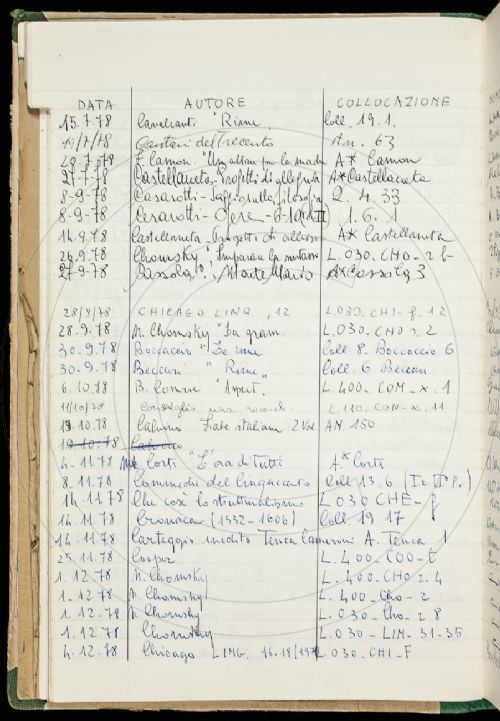 DATA AUTORE COLLOCAZIONE
15.7.78 Cavalcanti "Rime" Coll. 19.1.
19/7/78 Cantari del Trecento An. 63
20.7.78 F. Camon "Un altare per la madre A* Camon
27.7.78 Castellaneta - Progetti di allegria A* Castellaneta
8-9-78 Cesarotti - Saggio sulla filosofia 2. 4. 33
8-9-78 Cesarotti - Opere - 1. 6. 1
14.9.78 Castellaneta - Progetti di allegria A* Castellaneta
26.9.78 Chomsky "L.030-CHO-2 b
27.9.78 Cassola, Monte Mario A* Cassola 3
28/9/78 CHICAGO LING. 12 L.030. CHI-f. 12
28.9.78 N. Chomsky "La gram L.030-CHO 2. 2
30.9.78 Boccaccio "Le rime Coll. 8. Boccaccio 6
30.9.78 Beccari "Rime" Coll. 6 Beccari
6.10.78 B. Comrie "Aspect". L.400-COM-x. 1
11/10/78 L.110. CON-x. 11
19.10.78 Calvino Fiabe italiane 2 Vol AN 150
19.10.78 Calvino
4.11.78 Corti "L'ora di tutti A* Corti
8.11.78 Commedie del Cinquecento Coll 13.6 (Ia IIa P.)
14.11.78 Che cos'è lo strutturalismo L 030 CHE-f
14.11.78 Cronaca (1532-1606) Coll 19 17
14.11.78 Carteggio inedito Tenca Camerini A. Tenca 1
25.11.78 Cooper L.400-COO-t
1.12.78 N. Chomsky L.400-CHO 2. 4
1.12.78 N. Chomsky L.400-Cho-2
1.12.78 N. Chomsky L.030-Cho-2 8
1.12.78 Chomsky L.030-LIN-31-35
4.12.78 Chicago LING. L 030-CHI-F